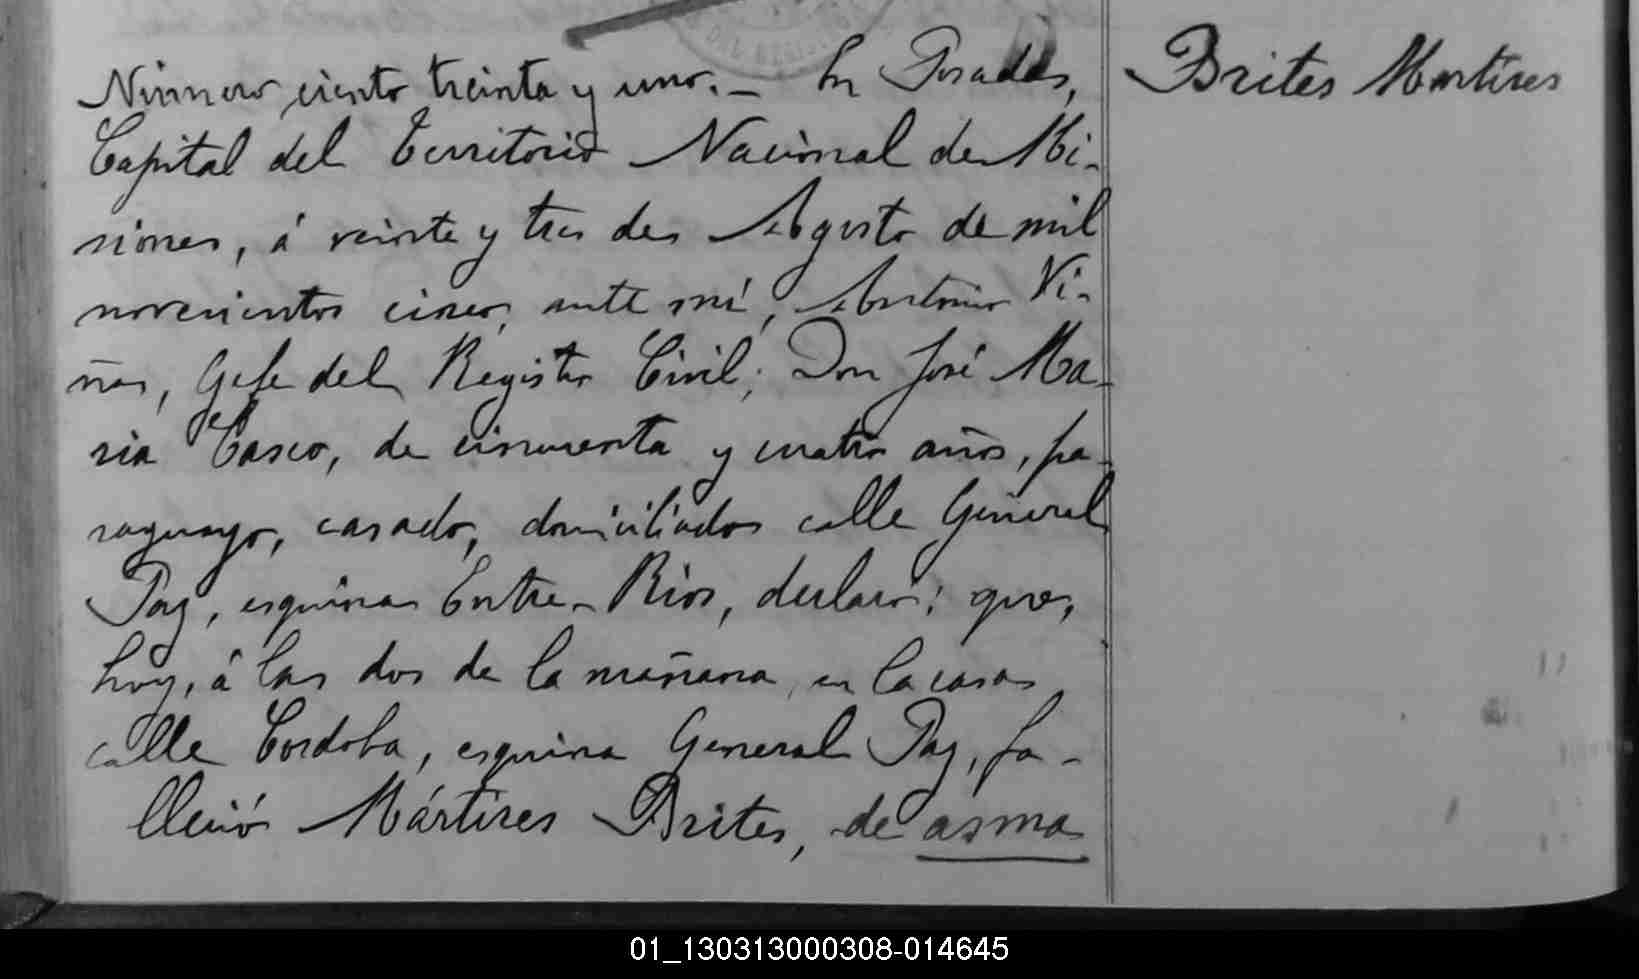 Número ciento treinta y uno. – En Posadas,
Capital del Territorio Nacional de Mi-
siones, á veinte y tres de Agosto de mil
novecientos cinco, ante mí, Antonio Vi-
ñas, Gefe del Registro Civil; Don José Ma-
ria Casco, de cincuenta y cuatro años, pa-
raguayo, casado, domiciliado calle General
Paz, esquina Entre-Rios, declaró: que,
hoy, á las dos de la mañana, en la casa
calle Cordoba, esquina General Paz, fa-
lleció Mártires Brites, de asma
Brites Martires
01_130313000308-014645